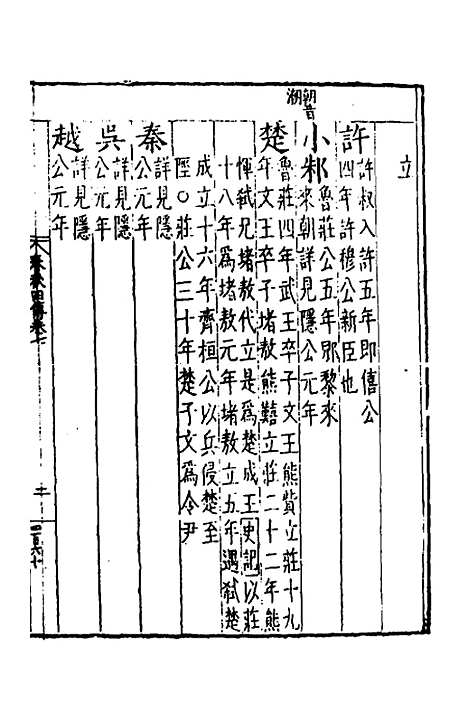 立
許 許叔入許五年即僖公
四年許穆公新臣也
朝音潮
小邾 魯莊公五年郳黎來
來朝詳見隱公元年
楚 魯莊四年武王卒子文王熊貲立莊十九
年文王卒子堵敖熊囏立莊二十二年熊
惲弒兄堵敖代立是爲楚成王史記以莊
十八年爲堵敖元年堵敖立五年遇弒楚
成立十六年齊桓公以兵侵楚至
陘○莊公三十年楚子文爲令尹
秦 詳見隱
公元年
吳 詳見隱
公元年
越 詳見隱
公元年
春秋四傳卷七